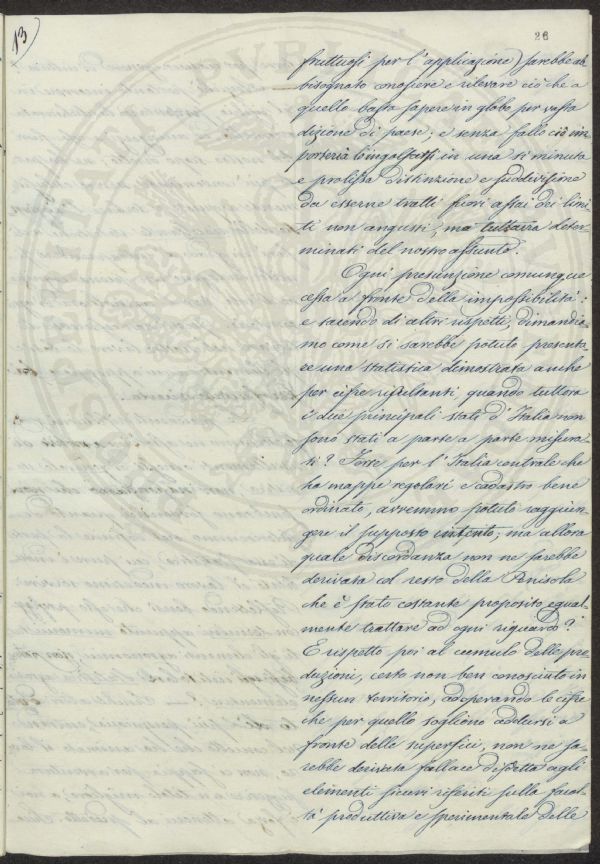 13
26
fruttuosi per l'applicazione) sarebbe ab
bisognato conoscere e rilevare ciò che a
quello basta sapere in globo per vasta
dizione di paese; e senza fallo ciò im
porteria l'ingolfarsi in una sì minuta
e prolissa distinzione e suddivisione
da esserne tratti fuori assai dei limi
ti non angusti, ma tuttavia deter-
minati del nostro assunto.
Ogni presunzione comunque
cessa a fronte della impossibilità:
e tacendo di altri rispetti, dimandia-
mo come si sarebbe potuto presenta
re una statistica dimostrata anche
per cifre risultanti, quando tuttora
i due principali stati d'Italia non
sono stati a parte a parte misura-
ti? Forse per l'Italia centrale che
ha mappe regolari e cadastro bene
ordinato, avremmo potuto raggiun-
gere il supposto intento; ma allora
quale discordanza non ne sarebbe
derivata col resto della Penisola
che è stato costante proposito egual-
mente trattare ad ogni riguardo?
E rispetto poi al cumulo delle pro
duzioni, certo non ben conosciuto in
nessun territorio, adoperando le cifre
che per quello sogliono addursi a
fronte delle superfici, non ne sa-
rebbe derivata fallace disetta agli
elementi sicuri riferiti sulla facol-
tà produttiva e sperimentale delle